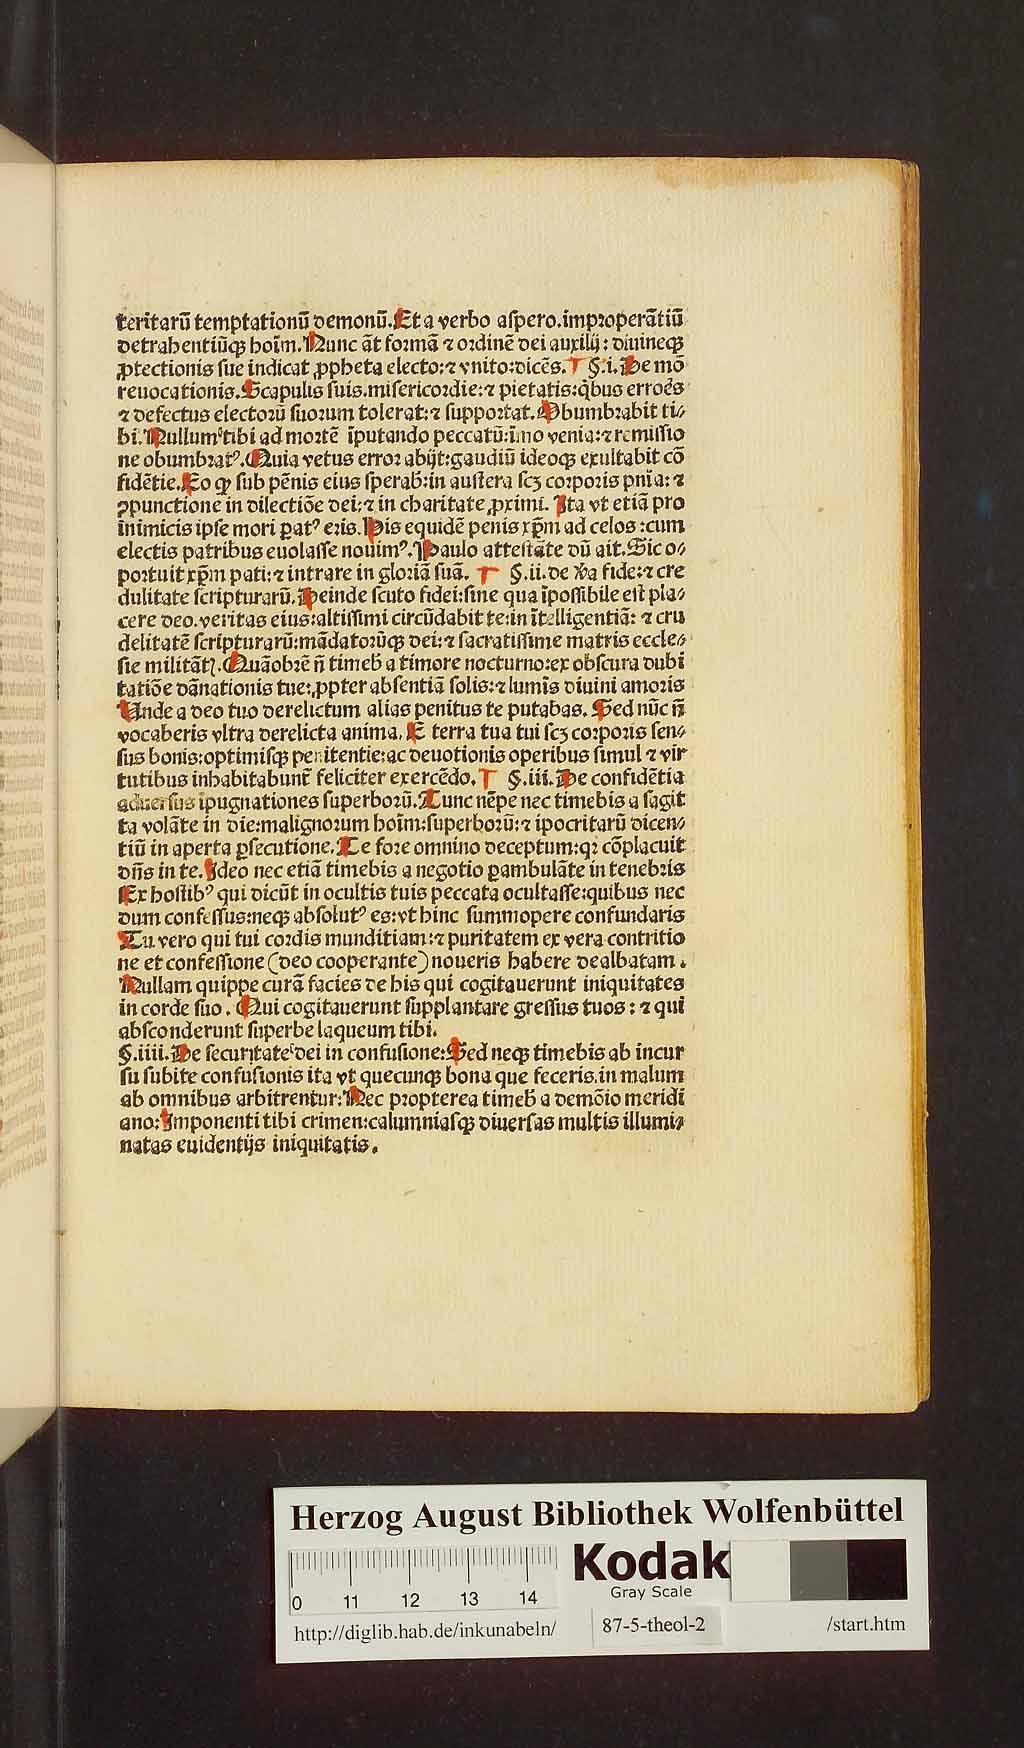 teritarū temptationū demonū. Et a verbo aspero. improperātiū
detrahentiūqꝫ hoim̄. Nunc āt formā ⁊ ordinē dei auxilij: diuineqꝫ
ꝓtectionis sue indicat ꝓpheta electo: ⁊ vnito: dicēs. §. i. De mō
reuocationis. Scapulis suis. misericordie: ⁊ pietatis: qͥbus erroēs
⁊ defectus electorū suorum tolerat: ⁊ supportat. Obumbrabit ti⸗
bi. Nullum tibi ad mortē īputando peccatū: īmo venia: ⁊ remissio
ne obumbratꝰ. Quia vetus error abijt: gaudiū ideoqꝫ exultabit cō
fidētie. Eo qꝙ sub pēnis eius sperab̄: in austera scꝫ corporis pnīa: ⁊
ꝯpunctione in dilectiōe dei: ⁊ in charitate ꝓximi. Ita vt etiā pro
inimicis ipse mori ꝑatꝰ eris. His equidē penis xp̄m ad celos: cum
electis patribus euolasse nouimꝰ. Paulo attestāte dū ait. Sic o⸗
portuit xp̄m pati: ⁊ intrare in gloriā suā. §. ii. de v̄a fide: ⁊ cre
dulitate scripturarū. Deinde scuto fidei: sine qua īpossibile est pla⸗
cere deo. veritas eius: altissimi circūdabit te: in ītelligentiā: ⁊ cru
delitatē scripturarū: mādatorūqꝫ dei: ⁊ sacratissime matris eccle⸗
sie militātꝭ. Quāobrē n̄ timeb̄ a timore nocturno: ex obscura dubi
tatiōe dānationis tue: ꝓpter absentiā solis: ⁊ luminis diuini amoris
Unde a deo tuo derelictum alias penitus te putabas. Sed nūc n̄
vocaberis vltra derelicta anima. E terra tua tui scꝫ corporis sen⸗
sus bonis: optimisqꝫ penitentie: ac deuotionis operibus simul ⁊ vir
tutibus inhabitabunt̄ feliciter exercēdo. §. iii. De confidētia
aduersus īpugnationes superborū. Tunc nēpe nec timebis a sagit
ta volāte in die: malignorum hoim̄: superborū: ⁊ ipocritarū dicen⸗
tiū in aperta ꝑsecutione. Te fore omnino deceptum: qꝛ cōplacuit
dn̄s in te. Ideo nec etiā timebis a negotio ꝑambulāte in tenebris
Ex hostibꝰ qui dicūt in ocultis tuis peccata ocultasse: quibus nec
dum confessus: neqꝫ absolutꝰ es: vt hinc summopere confundaris
Tu vero qui tui cordis munditiam: ⁊ puritatem ex vera contritio
ne et confessione (deo cooperante) noueris habere dealbatam.
Nullam quippe curā facies de his qui cogitauerunt iniquitates
in corde suo. Qui cogitauerunt supplantare gressus tuos: ⁊ qui
absconderunt superbe laqueum tibi.
§. iiii. De securitate dei in confusione: Sed neqꝫ timebis ab incur
su subite confusionis ita vt quecunqꝫ bona que feceris. in malum
ab omnibus arbitrentur: Nec propterea timeb̄ a demōio meridi
ano: Imponenti tibi crimen: calumniasqꝫ diuersas multis illumi⸗
natas euidentijs iniquitatis.
Herzog August Bibliothek Wolfenbüttel
Kodak
Gray Scale
0 11 12 13 14
http://diglib.hab.de/inkunabeln/ 87-5-theol-2 /start.htm